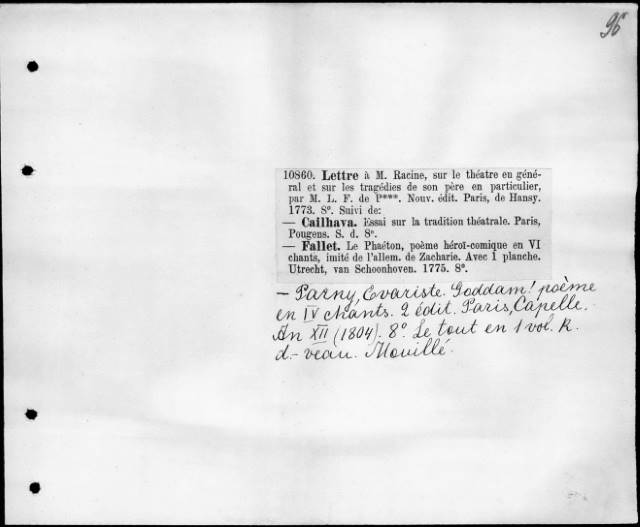 96
10860. Lettre à M. Racine, sur le théatre en géné-
ral et sur les tragédies de son père en particulier,
par M. L. F. de P***. Nouv. édit. Paris, de Hansy.
1773. 8°. Suivi de:
— Cailhava. Essai sur la tradition théatrale. Paris,
Pougens. S. d. 8°.
— Fallet. Le Phaéton, poème héroï-comique en VI
chants, imité de l'allem. de Zacharie. Avec 1 planche.
Utrecht, van Schoonhoven. 1775. 8°.
— Parny, Evariste. Goddam! poème
en IV chants. 2 édit. Paris, Capelle.
An XII (1804). 8° Le tout en 1 vol. R.
d.- veau. Mouillé.